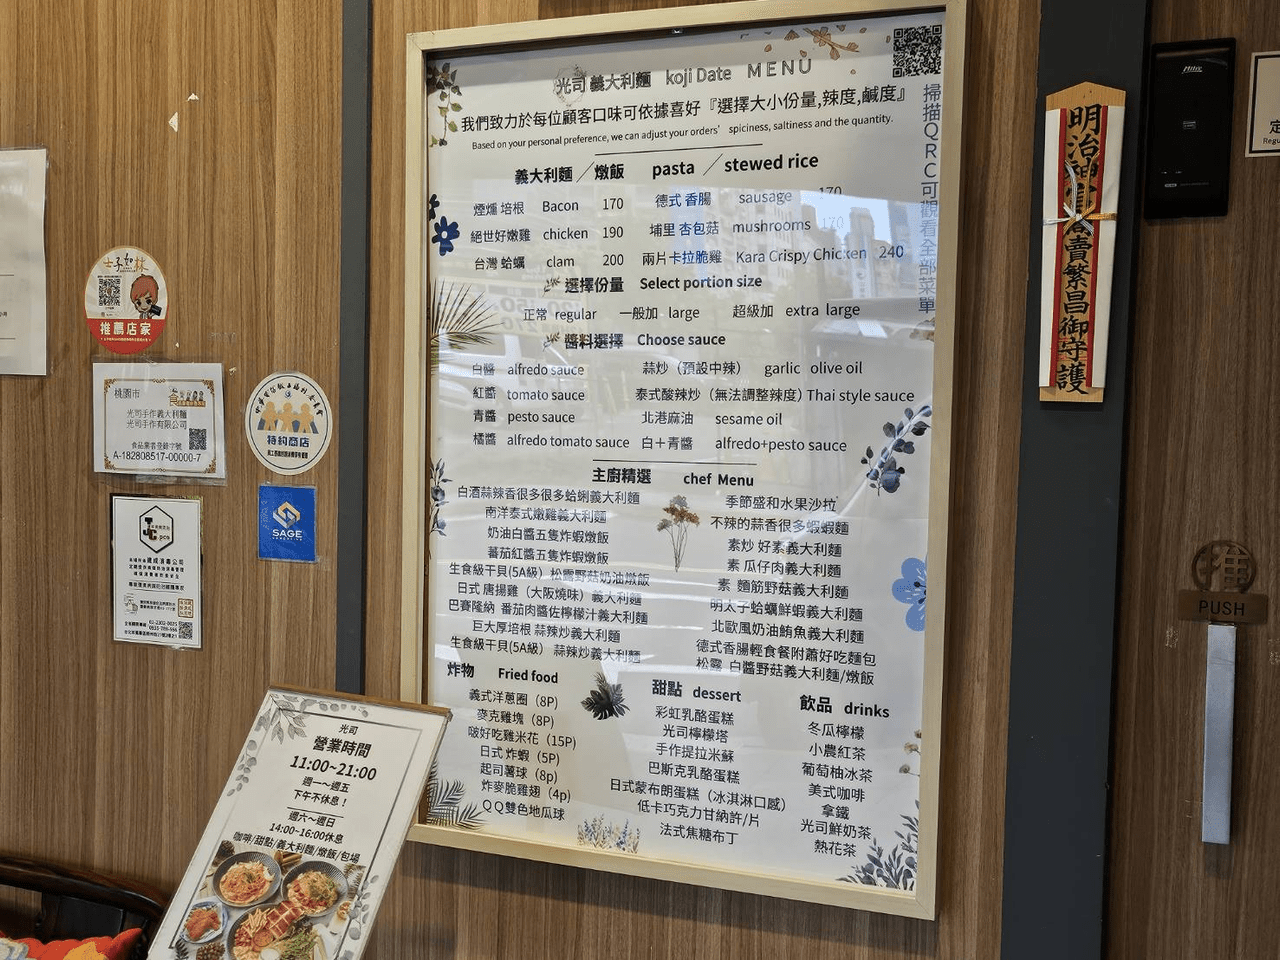 光司 義大利麵 koji Date MENU
我們致力於每位顧客口味可依據喜好『選擇大小份量,辣度,鹹度』
Based on your personal preference, we can adjust your orders' spiciness, saltiness and the quantity.
掃描QRC可觀看全部菜單
義大利麵／燉飯 pasta ／stewed rice
煙燻 培根 Bacon 170 德式 香腸 sausage 170
絕世好嫩雞 chicken 190 埔里 杏包菇 mushrooms 170
台灣 蛤蠣 clam 200 兩片卡拉脆雞 Kara Crispy Chicken 240
選擇份量 Select portion size
正常 regular 一般加 large 超級加 extra large
醬料選擇 Choose sauce
白醬 alfredo sauce 蒜炒（預設中辣） garlic olive oil
紅醬 tomato sauce 泰式酸辣炒（無法調整辣度）Thai style sauce
青醬 pesto sauce 北港麻油 sesame oil
橘醬 alfredo tomato sauce 白＋青醬 alfredo+pesto sauce
主廚精選 chef Menu
白酒蒜辣香很多很多蛤蜊義大利麵
南洋泰式燉雞義大利麵
奶油白醬五隻炸蝦燉飯
蕃茄紅醬五隻炸蝦燉飯
生食級干貝(5A級) 松露野菇奶油燉飯
日式 唐揚雞（大阪燒味）義大利麵
巴賽隆納 番茄肉醬佐檸檬汁義大利麵
巨大厚培根 蒜辣炒義大利麵
生食級干貝(5A級) 蒜辣炒義大利麵
季節盛和水果沙拉
不辣的蒜香很多蝦蝦麵
素炒 好素義大利麵
素 瓜仔肉義大利麵
素 麵筋野菇義大利麵
明太子蛤蠣鮮蝦義大利麵
北歐風奶油鮪魚義大利麵
德式香腸輕食餐附蕭好吃麵包
松露 白醬野菇義大利麵/燉飯
炸物 Fried food
義式洋蔥圈（8P）
麥克雞塊（8P）
啵好吃雞米花（15P）
日式 炸蝦（5P）
起司薯球（8p）
炸麥脆雞翅（4p）
ＱＱ雙色地瓜球
甜點 dessert
彩虹乳酪蛋糕
光司檸檬塔
手作提拉米蘇
巴斯克乳酪蛋糕
日式蒙布朗蛋糕（冰淇淋口感）
低卡巧克力甘納許/片
法式焦糖布丁
飲品 drinks
冬瓜檸檬
小農紅茶
葡萄柚冰茶
美式咖啡
拿鐵
光司鮮奶茶
熱花茶
光司
營業時間
11:00~21:00
週一～週五
下午不休息！
週六～週日
14:00~16:00休息
咖啡/甜點/義大利麵/燉飯/包場
士子如林
推薦店家
桃園市
光司手作義大利麵
光司手作有限公司
食品業者登錄字號
A-182808517-00000-7
特約商店
SAGE
JC
pcs
明治神宮
商賣繁昌御守護
推
PUSH
Miho
定
Regu